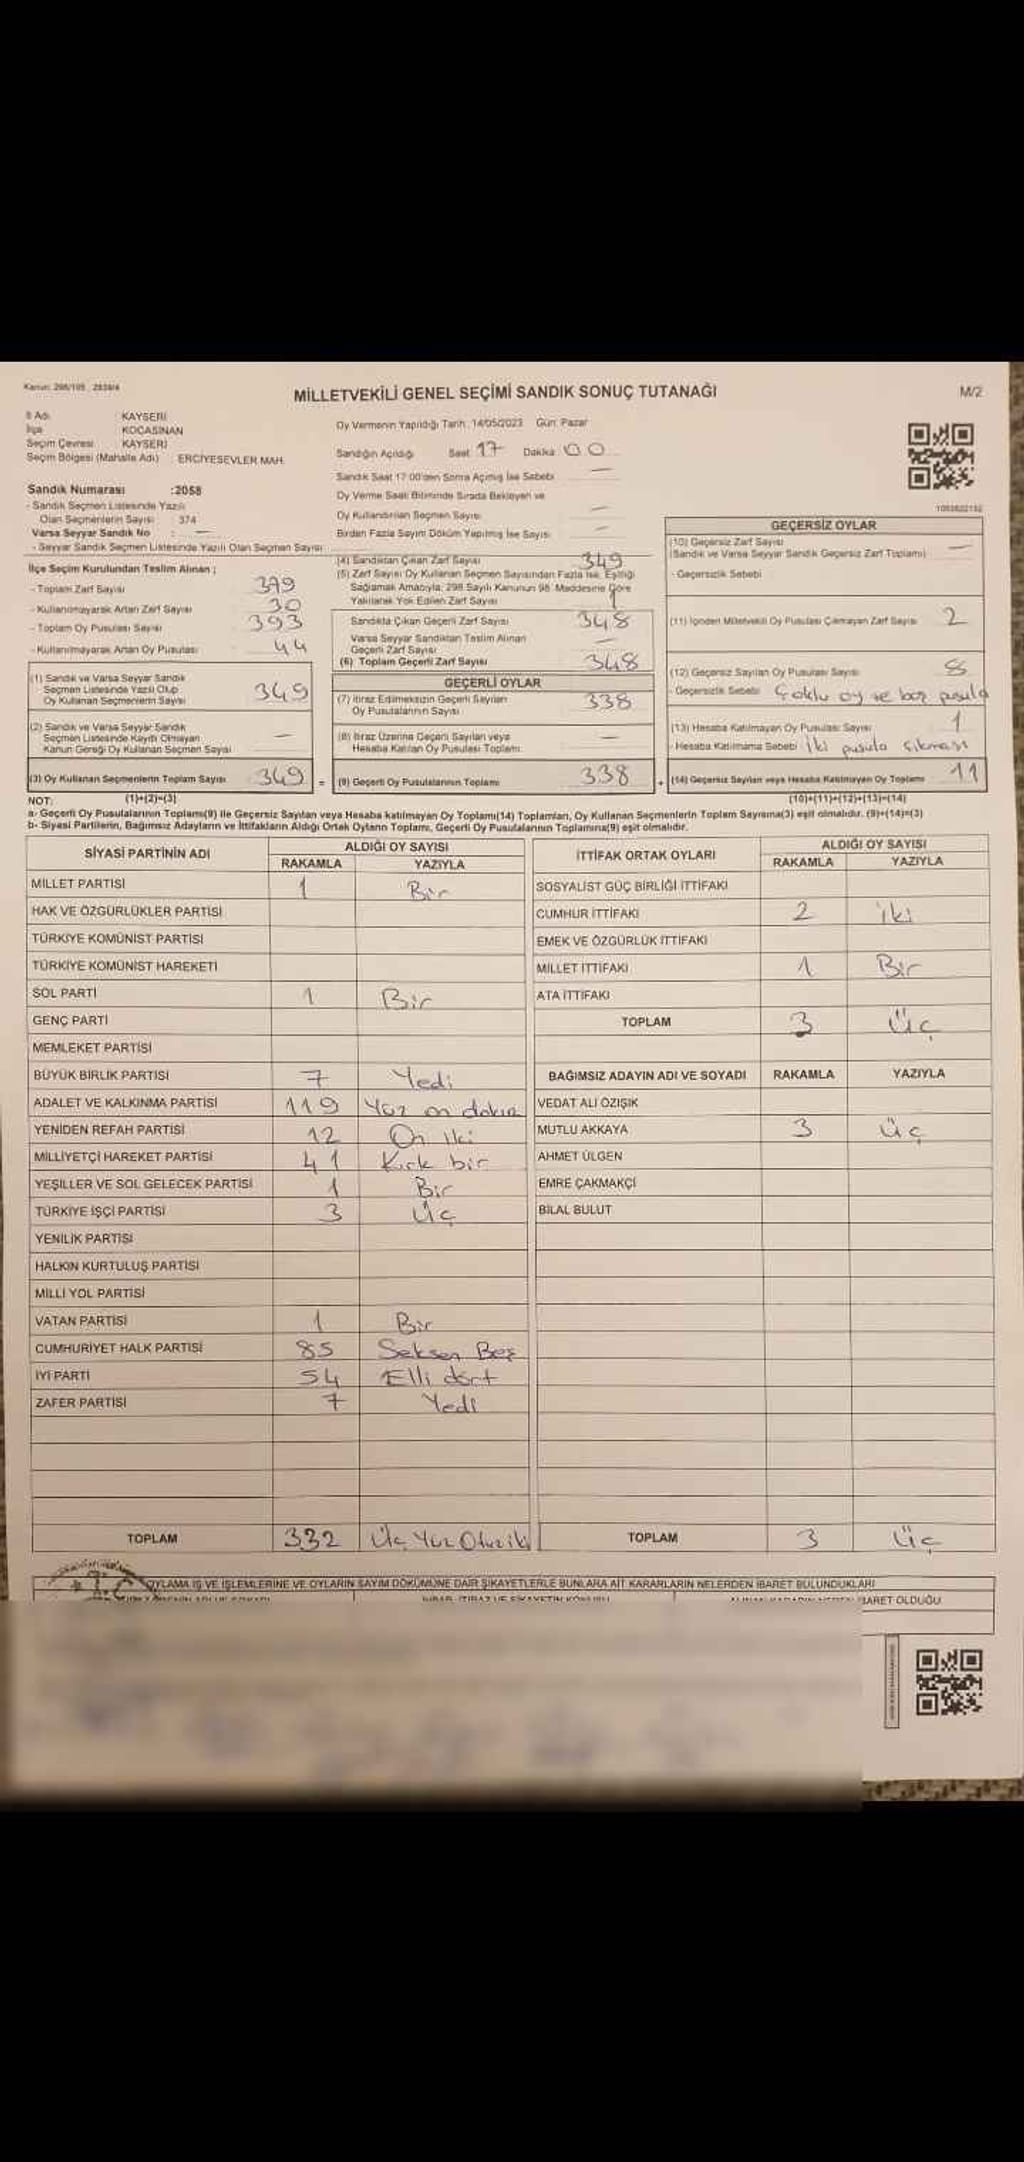 Kanun: 298/105 , 2839/4
MİLLETVEKİLİ GENEL SEÇİMİ SANDIK SONUÇ TUTANAĞI
M/2
İl Adı : KAYSERİ
İlçe : KOCASİNAN
Seçim Çevresi : KAYSERİ
Seçim Bölgesi (Mahalle Adı) : ERCİYESEVLER MAH.
Sandık Numarası :2058
- Sandık Seçmen Listesinde Yazılı
Olan Seçmenlerin Sayısı : 374
Varsa Seyyar Sandık No : —
- Seyyar Sandık Seçmen Listesinde Yazılı Olan Seçmen Sayısı
Oy Vermenin Yapıldığı Tarih: 14/05/2023 Gün: Pazar
Sandığın Açıldığı Saat 17 Dakika 00
Sandık Saat 17:00'den Sonra Açılmış İse Sebebi —
Oy Verme Saati Bitiminde Sırada Bekleyen ve
Oy Kullandırılan Seçmen Sayısı —
Birden Fazla Sayım Döküm Yapılmış İse Sayısı —
1003622152
İlçe Seçim Kurulundan Teslim Alınan ;
- Toplam Zarf Sayısı 379
- Kullanılmayarak Artan Zarf Sayısı 30
- Toplam Oy Pusulası Sayısı 393
- Kullanılmayarak Artan Oy Pusulası 44
(1) Sandık ve Varsa Seyyar Sandık
Seçmen Listesinde Yazılı Olup
Oy Kullanan Seçmenlerin Sayısı 349
(2) Sandık ve Varsa Seyyar Sandık
Seçmen Listesinde Kayıtlı Olmayan
Kanun Gereği Oy Kullanan Seçmen Sayısı —
(3) Oy Kullanan Seçmenlerin Toplam Sayısı 349 =
(1)+(2)=(3)
(4) Sandıktan Çıkan Zarf Sayısı 349
(5) Zarf Sayısı Oy Kullanan Seçmen Sayısından Fazla İse, Eşitliği
Sağlamak Amacıyla, 298 Sayılı Kanunun 98. Maddesine Göre
Yakılarak Yok Edilen Zarf Sayısı 1
Sandıkta Çıkan Geçerli Zarf Sayısı 348
Varsa Seyyar Sandıktan Teslim Alınan
Geçerli Zarf Sayısı —
(6) Toplam Geçerli Zarf Sayısı 348
GEÇERLİ OYLAR
(7) İtiraz Edilmeksizin Geçerli Sayılan
Oy Pusulalarının Sayısı 338
(8) İtiraz Üzerine Geçerli Sayılan veya
Hesaba Katılan Oy Pusulası Toplamı —
(9) Geçerli Oy Pusulalarının Toplamı 338 +
GEÇERSİZ OYLAR
(10) Geçersiz Zarf Sayısı
(Sandık ve Varsa Seyyar Sandık Geçersiz Zarf Toplamı) —
- Geçersizlik Sebebi
(11) İçinden Milletvekili Oy Pusulası Çıkmayan Zarf Sayısı 2
(12) Geçersiz Sayılan Oy Pusulası Sayısı 8
- Geçersizlik Sebebi Çoklu oy ve boş pusula
(13) Hesaba Katılmayan Oy Pusulası Sayısı 1
- Hesaba Katılmama Sebebi İki pusula çıkması
(14) Geçersiz Sayılan veya Hesaba Katılmayan Oy Toplamı 11
(10)+(11)+(12)+(13)=(14)
NOT:
a- Geçerli Oy Pusulalarının Toplamı(9) ile Geçersiz Sayılan veya Hesaba katılmayan Oy Toplamı(14) Toplamları, Oy Kullanan Seçmenlerin Toplam Sayısına(3) eşit olmalıdır. (9)+(14)=(3)
b- Siyasi Partilerin, Bağımsız Adayların ve İttifakların Aldığı Ortak Oyların Toplamı, Geçerli Oy Pusulalarının Toplamına(9) eşit olmalıdır.
SİYASİ PARTİNİN ADI
ALDIĞI OY SAYISI
RAKAMLA YAZIYLA
MİLLET PARTİSİ 1 Bir
HAK VE ÖZGÜRLÜKLER PARTİSİ
TÜRKİYE KOMÜNİST PARTİSİ
TÜRKİYE KOMÜNİST HAREKETİ
SOL PARTİ 1 Bir
GENÇ PARTİ
MEMLEKET PARTİSİ
BÜYÜK BİRLİK PARTİSİ 7 Yedi
ADALET VE KALKINMA PARTİSİ 119 Yüz on dokuz
YENİDEN REFAH PARTİSİ 12 On iki
MİLLİYETÇİ HAREKET PARTİSİ 41 Kırk bir
YEŞİLLER VE SOL GELECEK PARTİSİ 1 Bir
TÜRKİYE İŞÇİ PARTİSİ 3 Üç
YENİLİK PARTİSİ
HALKIN KURTULUŞ PARTİSİ
MİLLİ YOL PARTİSİ
VATAN PARTİSİ 1 Bir
CUMHURİYET HALK PARTİSİ 85 Seksen Beş
İYİ PARTİ 54 Elli dört
ZAFER PARTİSİ 7 Yedi
TOPLAM 332 Üç Yüz Otuz iki
İTTİFAK ORTAK OYLARI
ALDIĞI OY SAYISI
RAKAMLA YAZIYLA
SOSYALİST GÜÇ BİRLİĞİ İTTİFAKI
CUMHUR İTTİFAKI 2 iki
EMEK VE ÖZGÜRLÜK İTTİFAKI
MİLLET İTTİFAKI 1 Bir
ATA İTTİFAKI
TOPLAM 3 Üç
BAĞIMSIZ ADAYIN ADI VE SOYADI RAKAMLA YAZIYLA
VEDAT ALİ ÖZIŞIK
MUTLU AKKAYA 3 üç
AHMET ÜLGEN
EMRE ÇAKMAKÇI
BİLAL BULUT
TOPLAM 3 Üç
OYLAMA İŞ VE İŞLEMLERİNE VE OYLARIN SAYIM DÖKÜMÜNE DAİR ŞİKAYETLERLE BUNLARA AİT KARARLARIN NELERDEN İBARET BULUNDUKLARI
İHBAR, İTİRAZ VE ŞİKAYETİN KONUSU
İBARET OLDUĞU